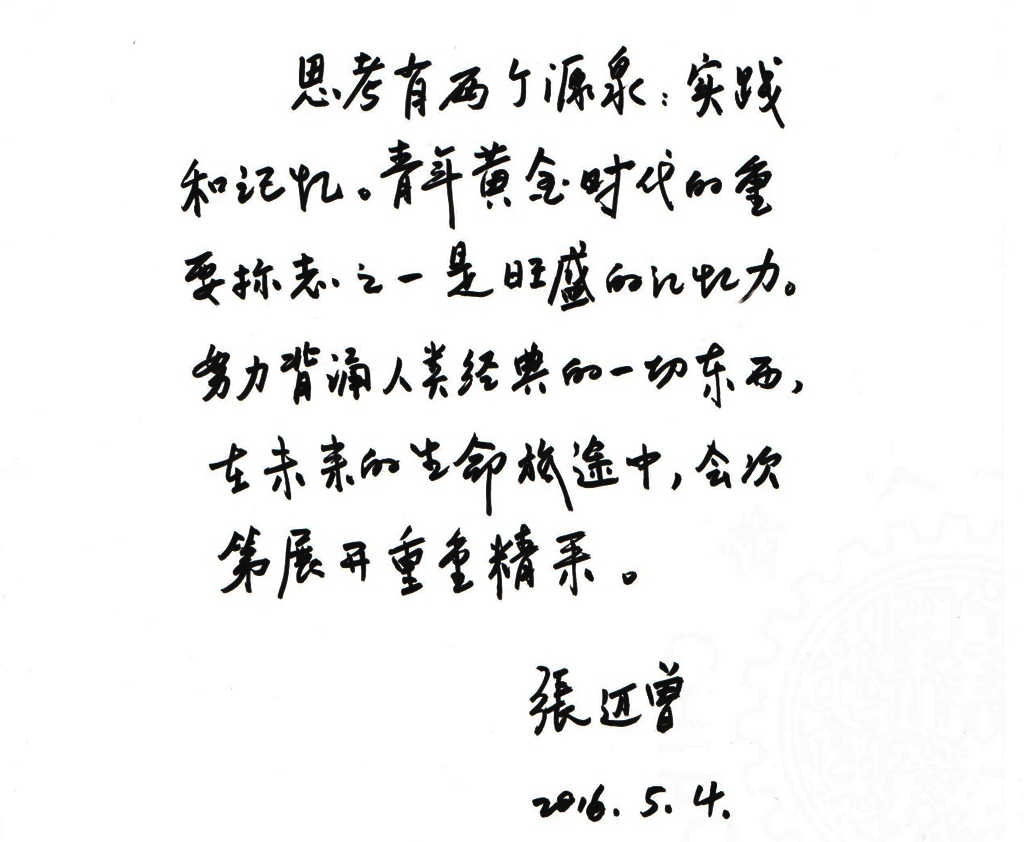 思考有两个源泉：实践
和记忆。青年黄金时代的重
要标志之一是旺盛的记忆力。
努力背诵人类经典的一切东西，
在未来的生命旅途中，会次
第展开重重精采。
張迈曾
2016.5.4.